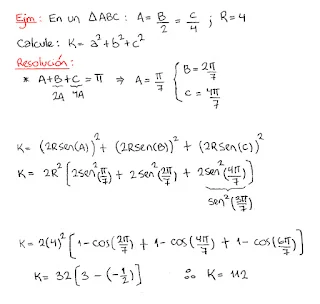 Ejm: En un △ABC: A = B/2 = C/4 ; R=4
Calcule: K = a² + b² + c²
Resolución:
* A+B+C = π ⇒ A = π/7 { B = 2π/7
2A 4A C = 4π/7
K = (2Rsen(A))² + (2Rsen(B))² + (2Rsen(C))²
K = 2R² [2sen²(π/7) + 2sen²(2π/7) + 2sen²(4π/7)]
sen²(3π/7)
K = 2(4)² [1-cos(2π/7) + 1-cos(4π/7) + 1-cos(6π/7)]
K = 32 [3 - (-1/2)] ∴ K = 112